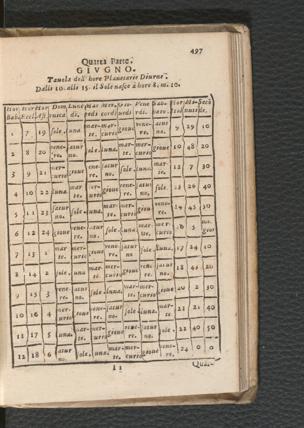 497
Quarta Parte.
GIVGNO.
Tauola dell' hore Planetarie Diurne.
Dalli 10. alli 15. il Sole nasce à hore 8. m. 10.
1 7 19 sole. luna mar-te. mer-curo gioue vene-re. satur no. 9 29 10
2 8 20 vene-re. satur no. sole. luna. mar-te. mer-curo gioue 10 48 20
3 9 21 mer-curo gioue vene-re. satur no. sole. luna. mar-te. 12 7 30
4 10 22 luna mar-te. mer-curo gioue vene-re. satur no. sole 13 26 40
5 11 23 satur no. sole. luna. mar-te. mer-curo gioue vene-re. 14 45 50
6 12 24 gioue vene-re. satur no. sole. luna. mar-te. mer-curo 16 5 me giot
7 13 1 mar-te. mer-curo gioue vene-re. satur no sole luna. 17 24 10
8 14 2 sole. luna. mar-te. mer-curo gioue vene-re. satur no. 18 20
9 15 3 vene-re. satur no. sole luna. mar-te. mer-curo gioue 20 2 30
10 16 4 mer-curo gioue vene-re. satur no. sole. luna. mar-te. 21 21 40
11 17 5 luna. mar-te. mer-curo gioue vene-re. satur no. sole. 22 40 50
12 18 6 satur no. sole. luna. mar-te. mer-curo gioue vene-re. 24 0 0
Qua-